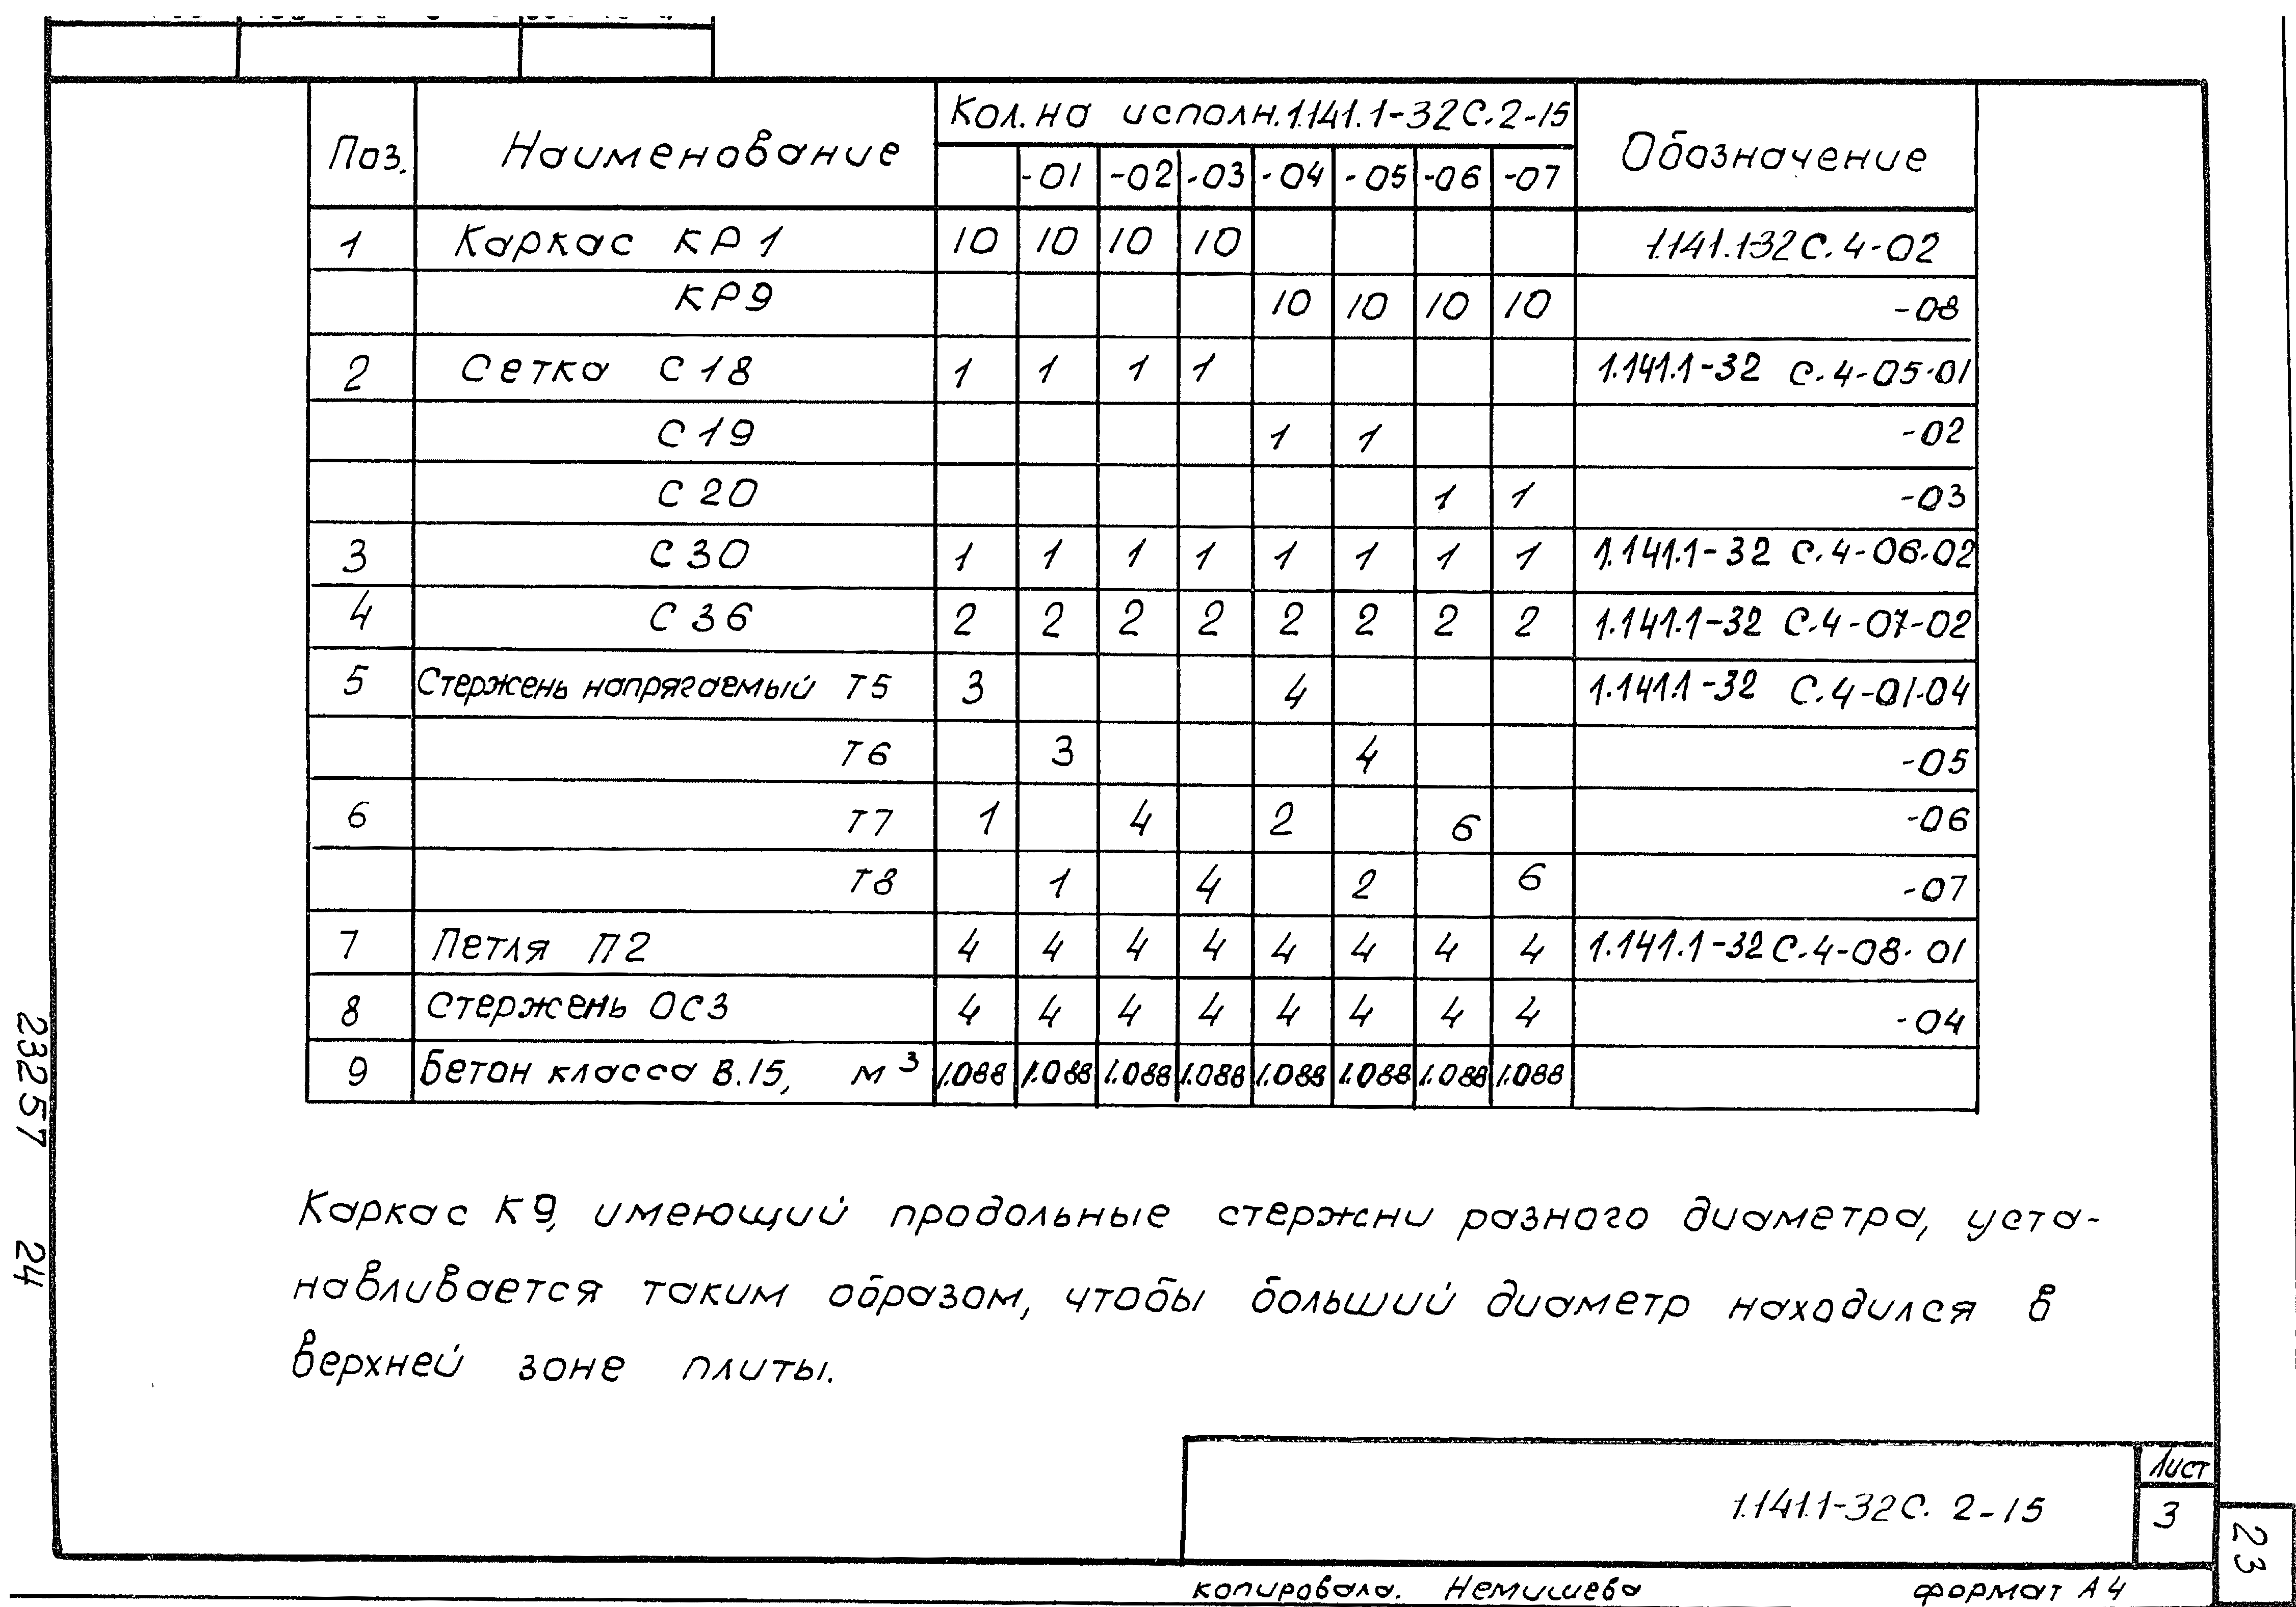 Поз. Наименование Кол. на исполн. 1.141.1-32С.2-15 Обозначение
-01 -02 -03 -04 -05 -06 -07
1 Каркас КР1 10 10 10 10 1.141.132С.4-02
КР9 10 10 10 10 -08
2 Сетка С18 1 1 1 1 1.141.1-32 С.4-05-01
С19 1 1 -02
С20 1 1 -03
3 С30 1 1 1 1 1 1 1 1 1.141.1-32 С.4-06-02
4 С36 2 2 2 2 2 2 2 2 1.141.1-32 С.4-07-02
5 Стержень напрягаемый Т5 3 4 1.141.1-32 С.4-01-04
Т6 3 4 -05
6 Т7 1 4 2 6 -06
Т8 1 4 2 6 -07
7 Петля П2 4 4 4 4 4 4 4 4 1.141.1-32С.4-08-01
8 Стержень ОС3 4 4 4 4 4 4 4 4 -04
9 Бетон класса В.15, м³ 1.088 1.088 1.088 1.088 1.088 1.088 1.088 1.088
Каркас К9, имеющий продольные стержни разного диаметра, уста-
навливается таким образом, чтобы больший диаметр находился в
верхней зоне плиты.
23257 24
1.141.1-32С. 2-15
Лист
3
23
копировала. Немишева формат А4